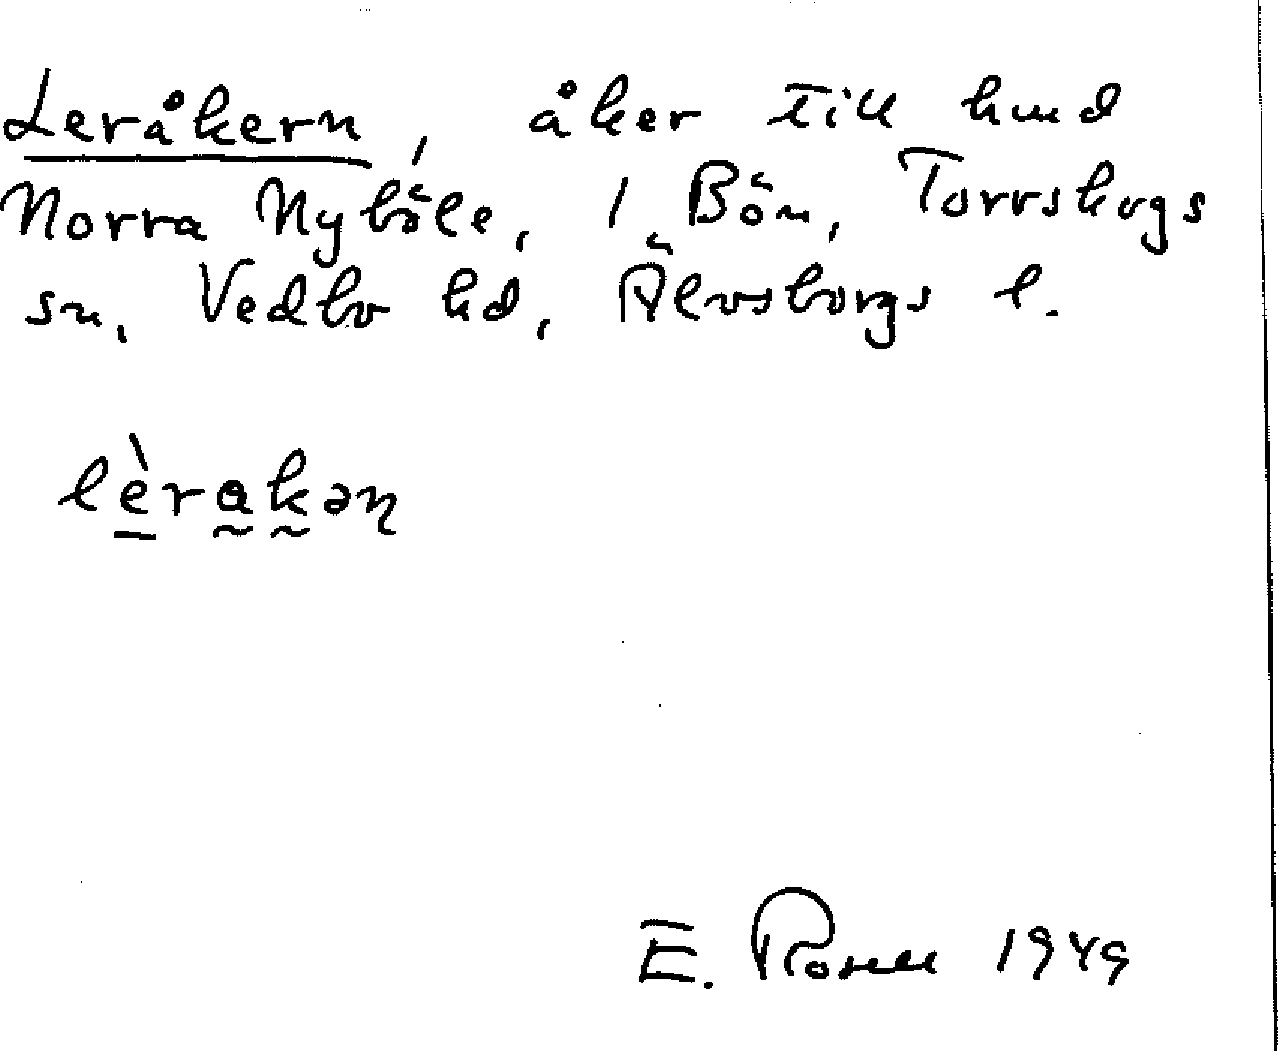 Leråkern, åker till hmd
Norra Nyböle, 1 Bön, Torrskogs
sn, Vedbo hd, Älvsborgs l.
lèrakəɳ
E. Rosell 1949